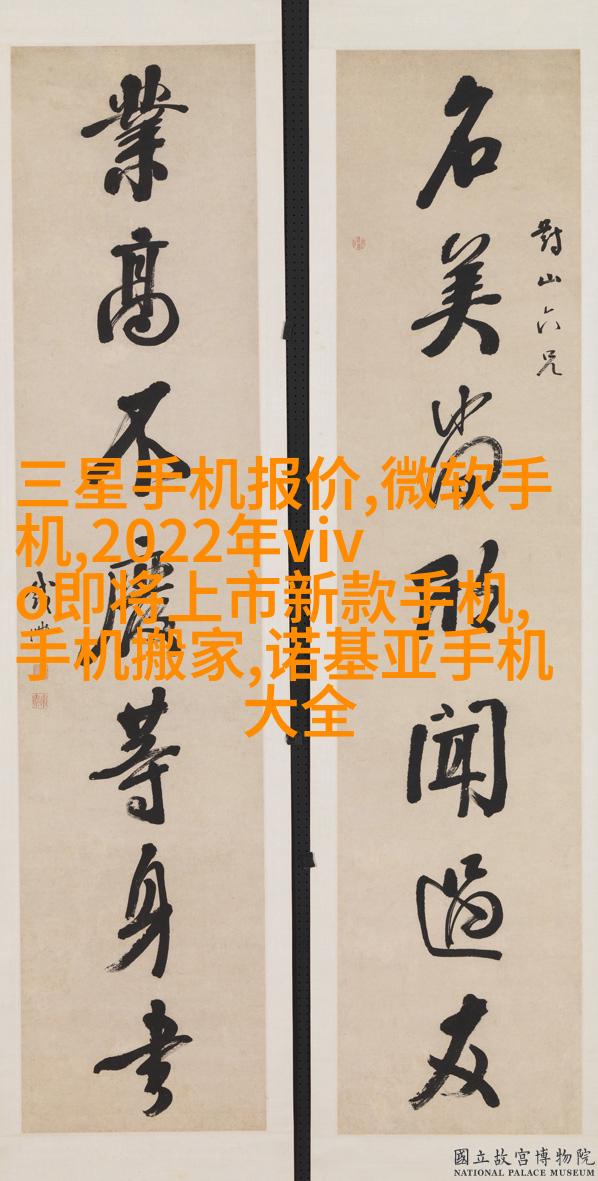 對山六兄
名美尚聞過友
業高不廢等身書
三星手机报价,微软手
机,2022年viv
o即将上市新款手机,
手机搬家,诺基亚手机
大全
國立故宮博物院
NATIONAL PALACE MUSEUM